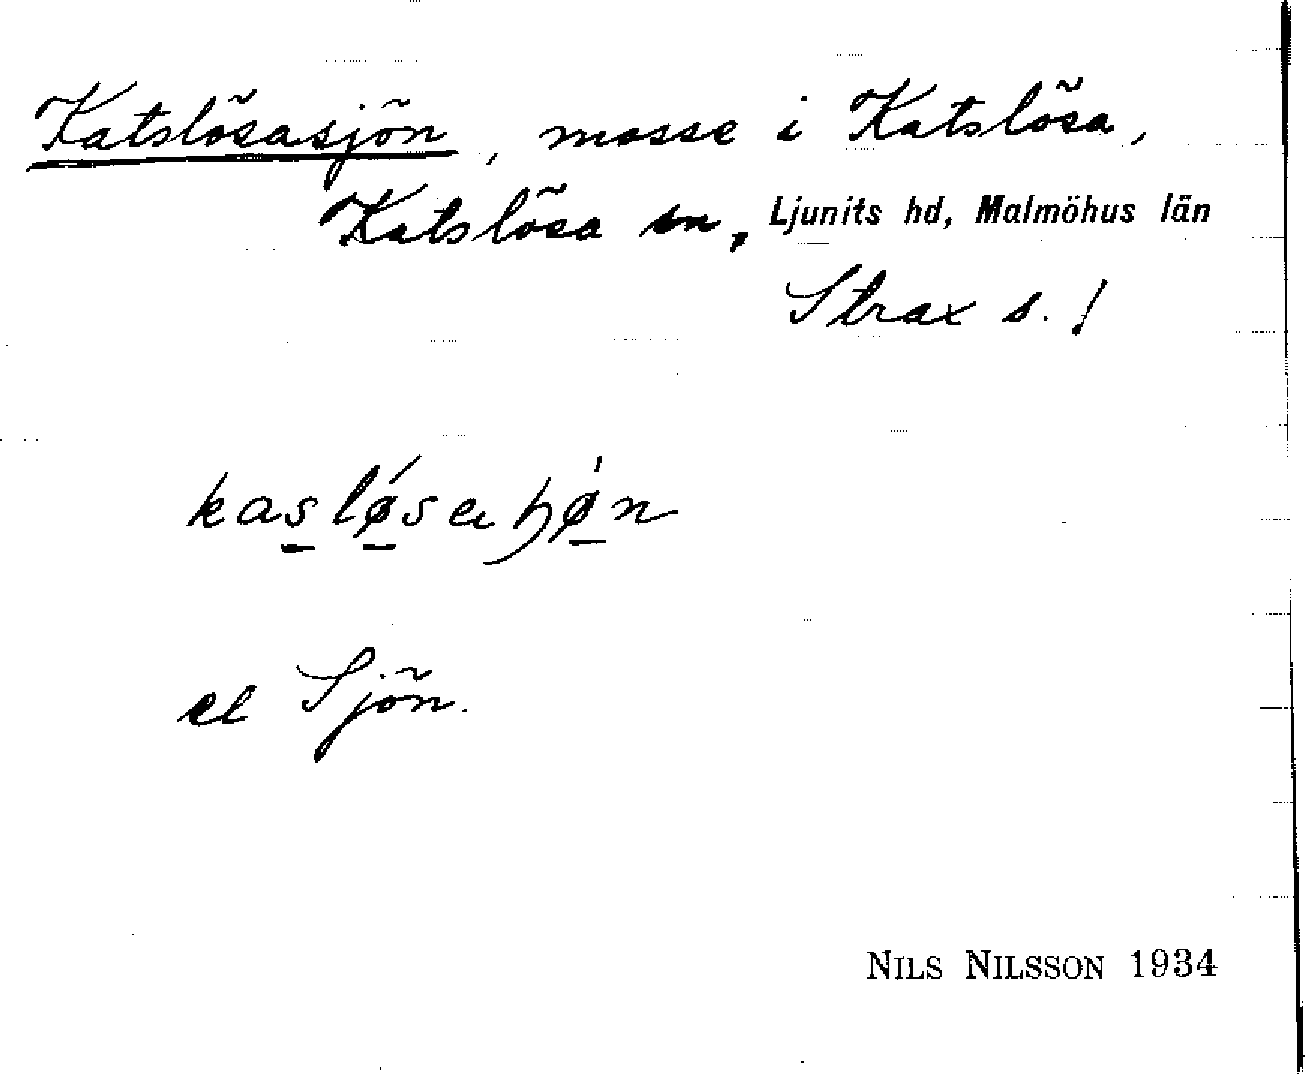 Katslösasjön, mosse i Katslösa,
Katslösa sn, Ljunits hd, Malmöhus län
Strax s. !
kaslǿsaɧǿn
el Sjön.
NILS NILSSON 1934